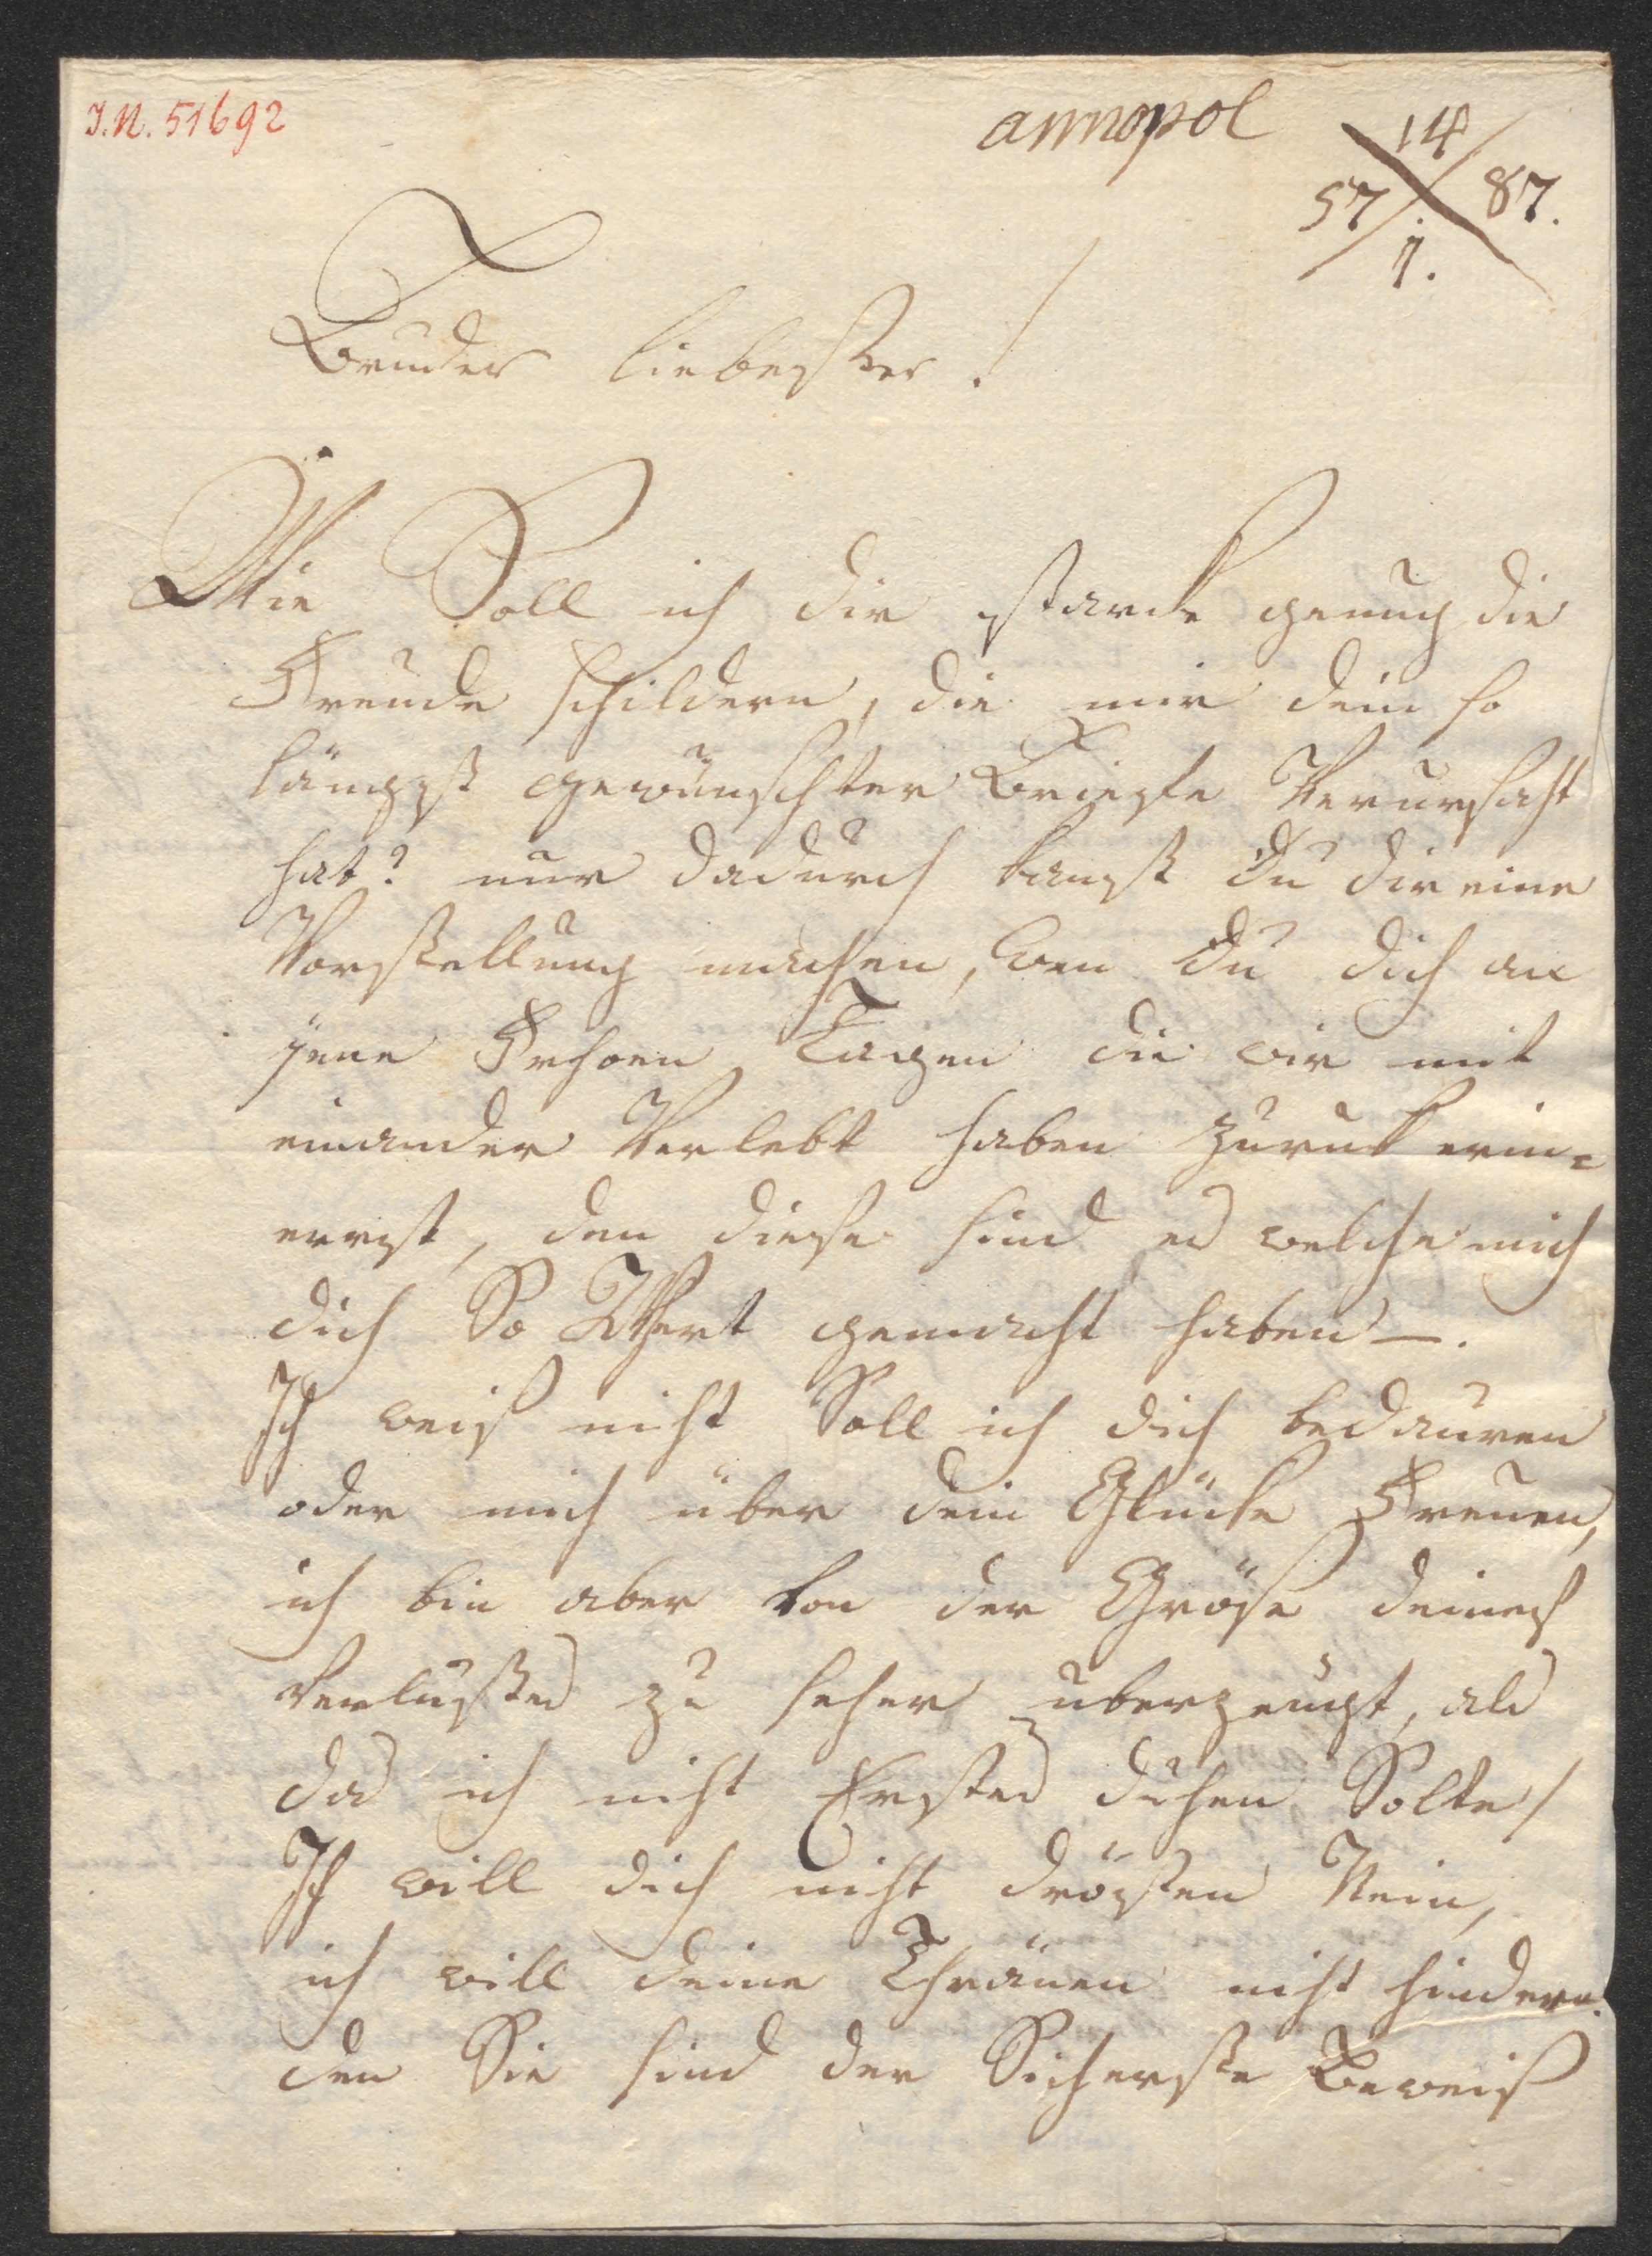 I.N. 51692
annopol
14
57 87.
1.
Bruder liebester!
Wie Soll ich dir starcke genug die
Freude schildern, die mir dein so
längst gewünschter Briefe Verursacht
hat? nur dadurch kanst Du dir eine
Vorstellung machen, wen Du dich an
jene Frohen Tagen die wir mit
einander Verlebt haben zuruk erin=
nerst, den diese sind es welche mich
dich So Wert gemacht haben —.
Ich weiß nicht Soll ich dich bedauren
oder mich über dein Glücke Freuen,
ich bin aber von der Gröse deines
Verlustes zu seher uberzeugt, als
das ich nicht Erstes duhen Solte /
Ich will dich nicht drösten Nein,
ich will deine Thränen nicht hindern.
den Sie sind der Sicherste Beweiß